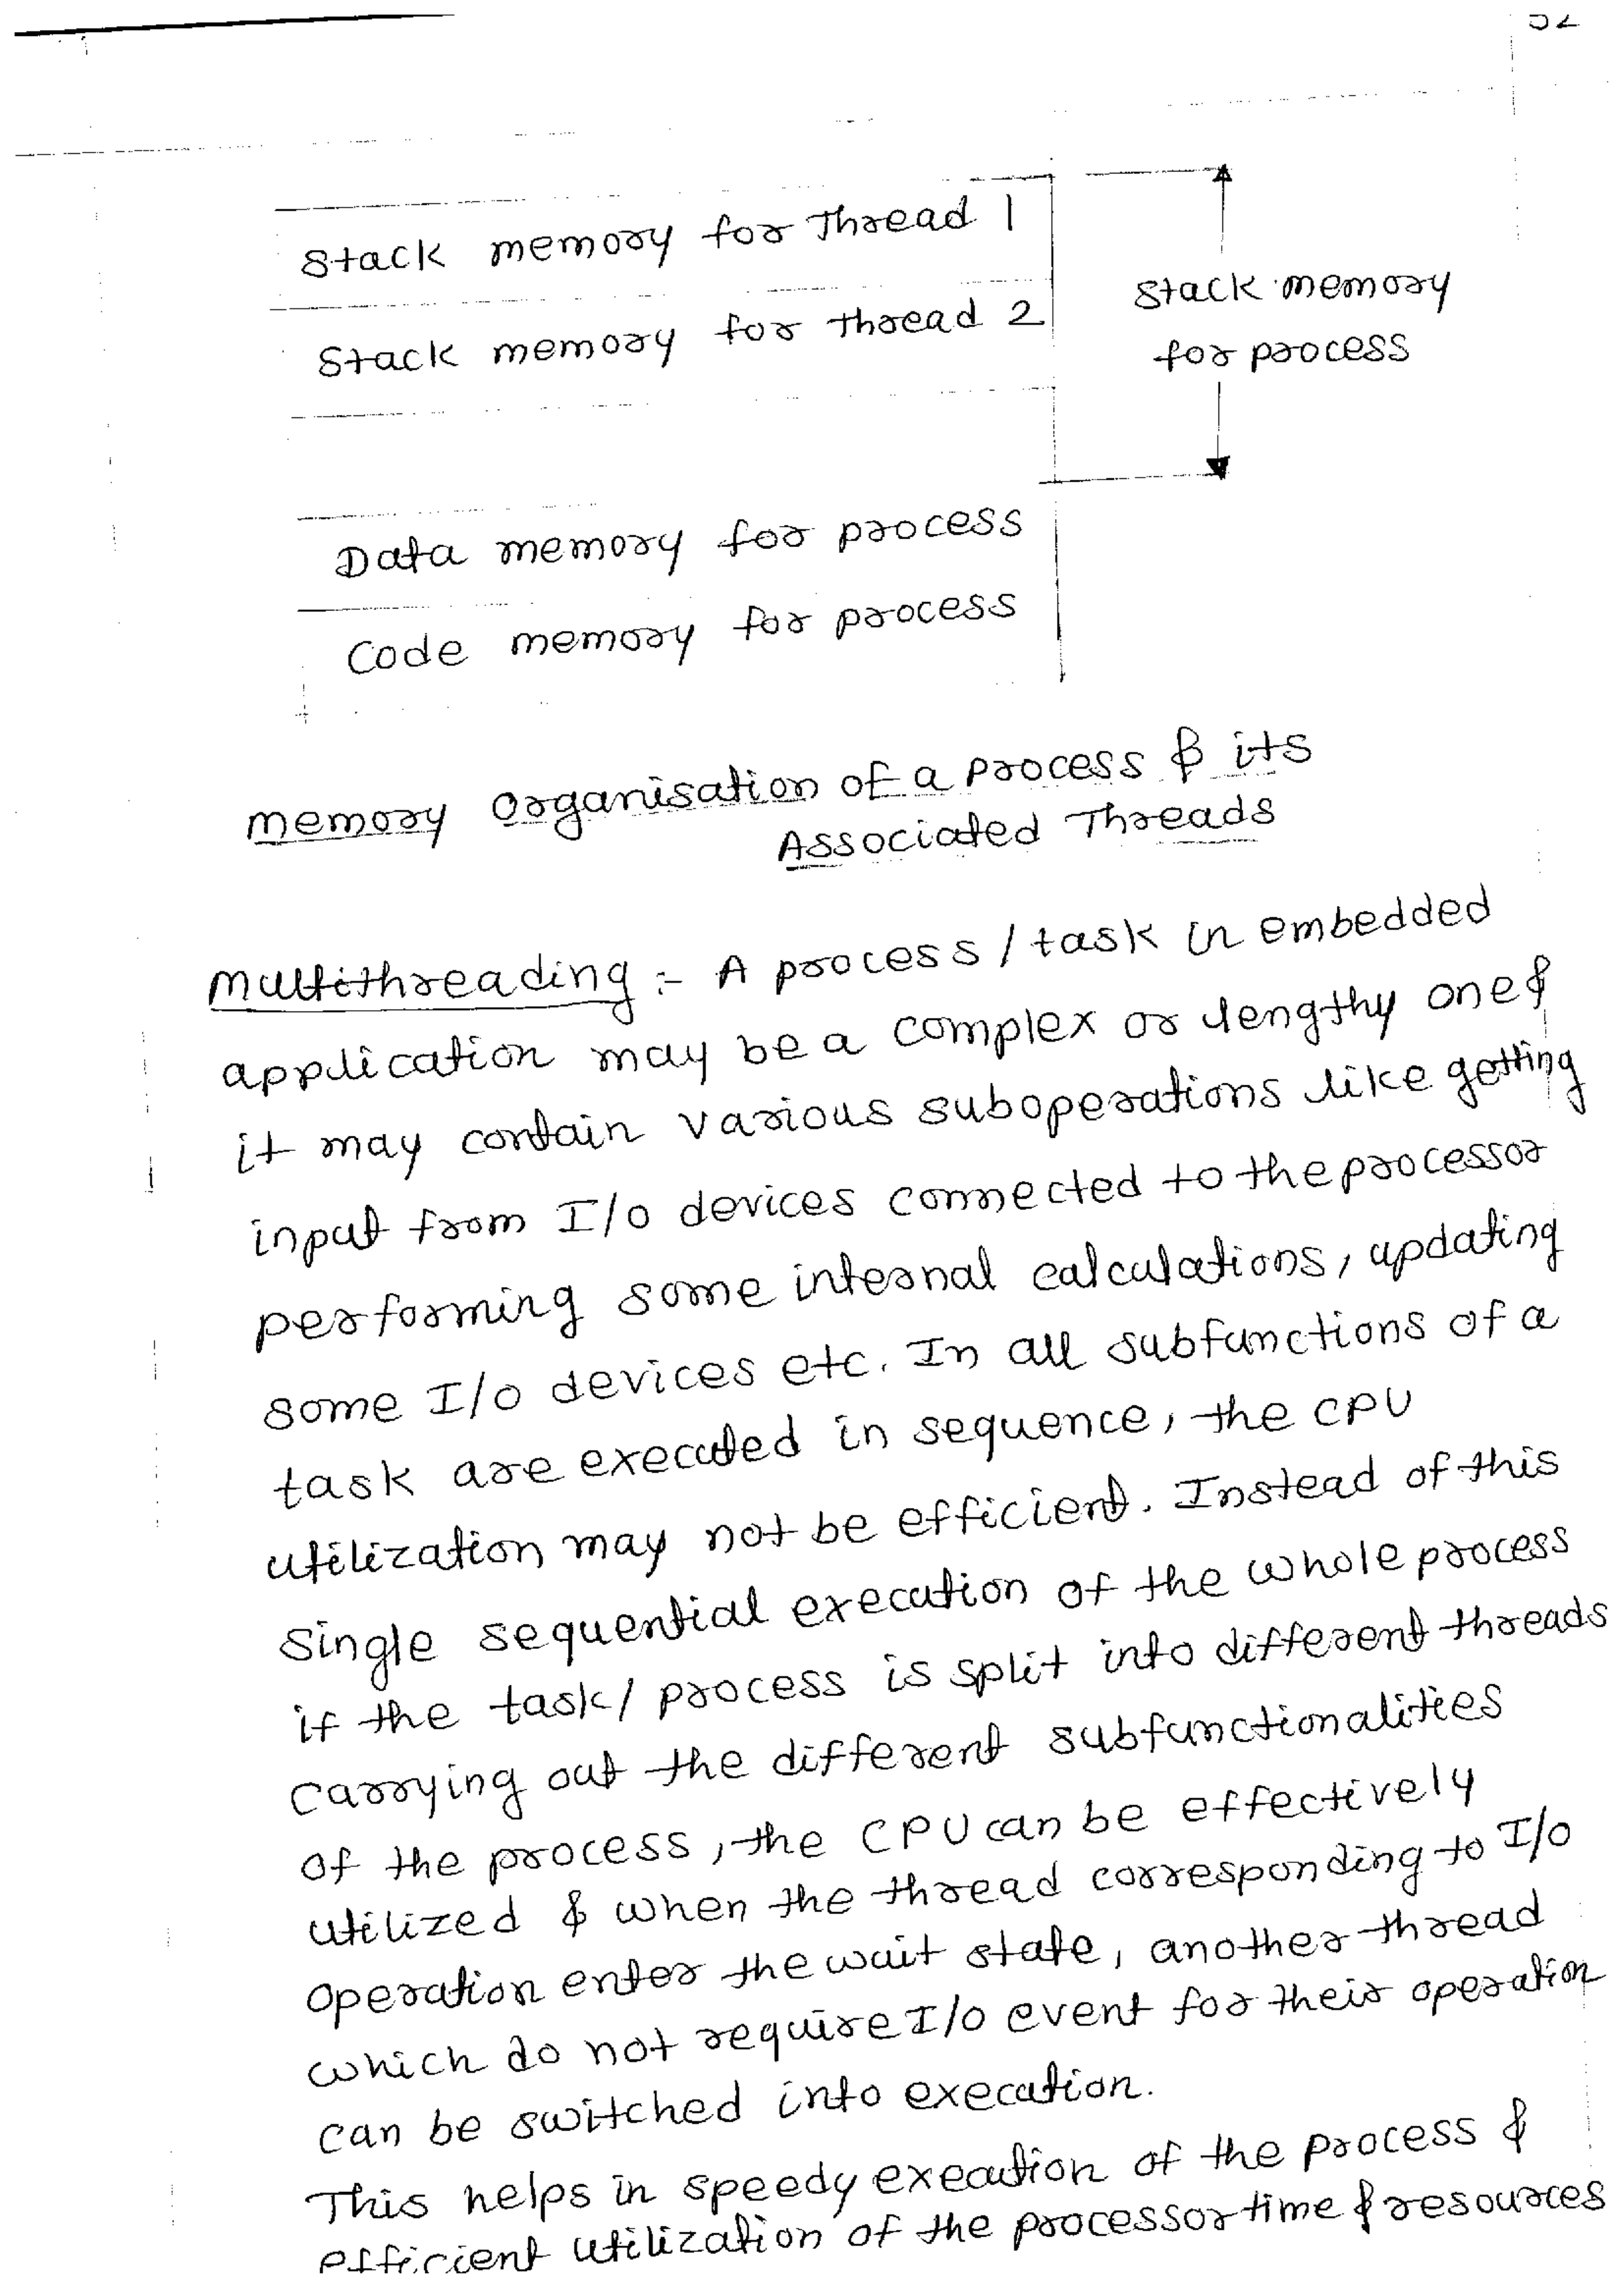 52
Stack memory for Thread 1
Stack memory for thread 2
Stack memory
for process
Data memory for process
Code memory for process
Memory Organisation of a Process & its
Associated Threads
Multithreading :- A process / task in embedded
application may be a complex or lengthy one &
it may contain various suboperations like getting
input from I/O devices connected to the processor
performing some internal calculations, updating
some I/O devices etc. In all subfunctions of a
task are executed in sequence, the CPU
utilization may not be efficient. Instead of this
single sequential execution of the whole process
if the task / process is split into different threads
carrying out the different subfunctionalities
of the process, the CPU can be effectively
utilized & when the thread corresponding to I/O
operation enter the wait state, another thread
which do not require I/O event for their operation
can be switched into execution.
This helps in speedy execution of the process &
efficient utilization of the processor time & resources